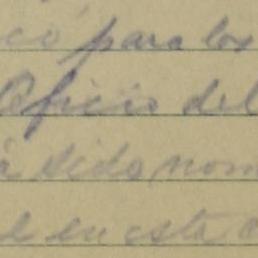 co para los
Oficio del
a sido nom
el en esta